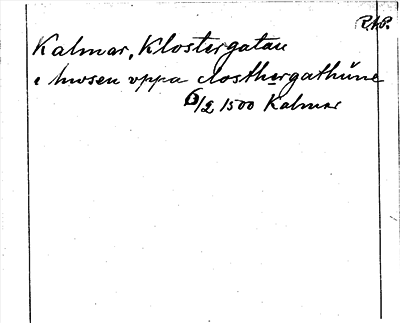 R.A.P.
Kalmar, Klostergatan
i hwsen vppa closthergathůne
6/2 1500 Kalmar